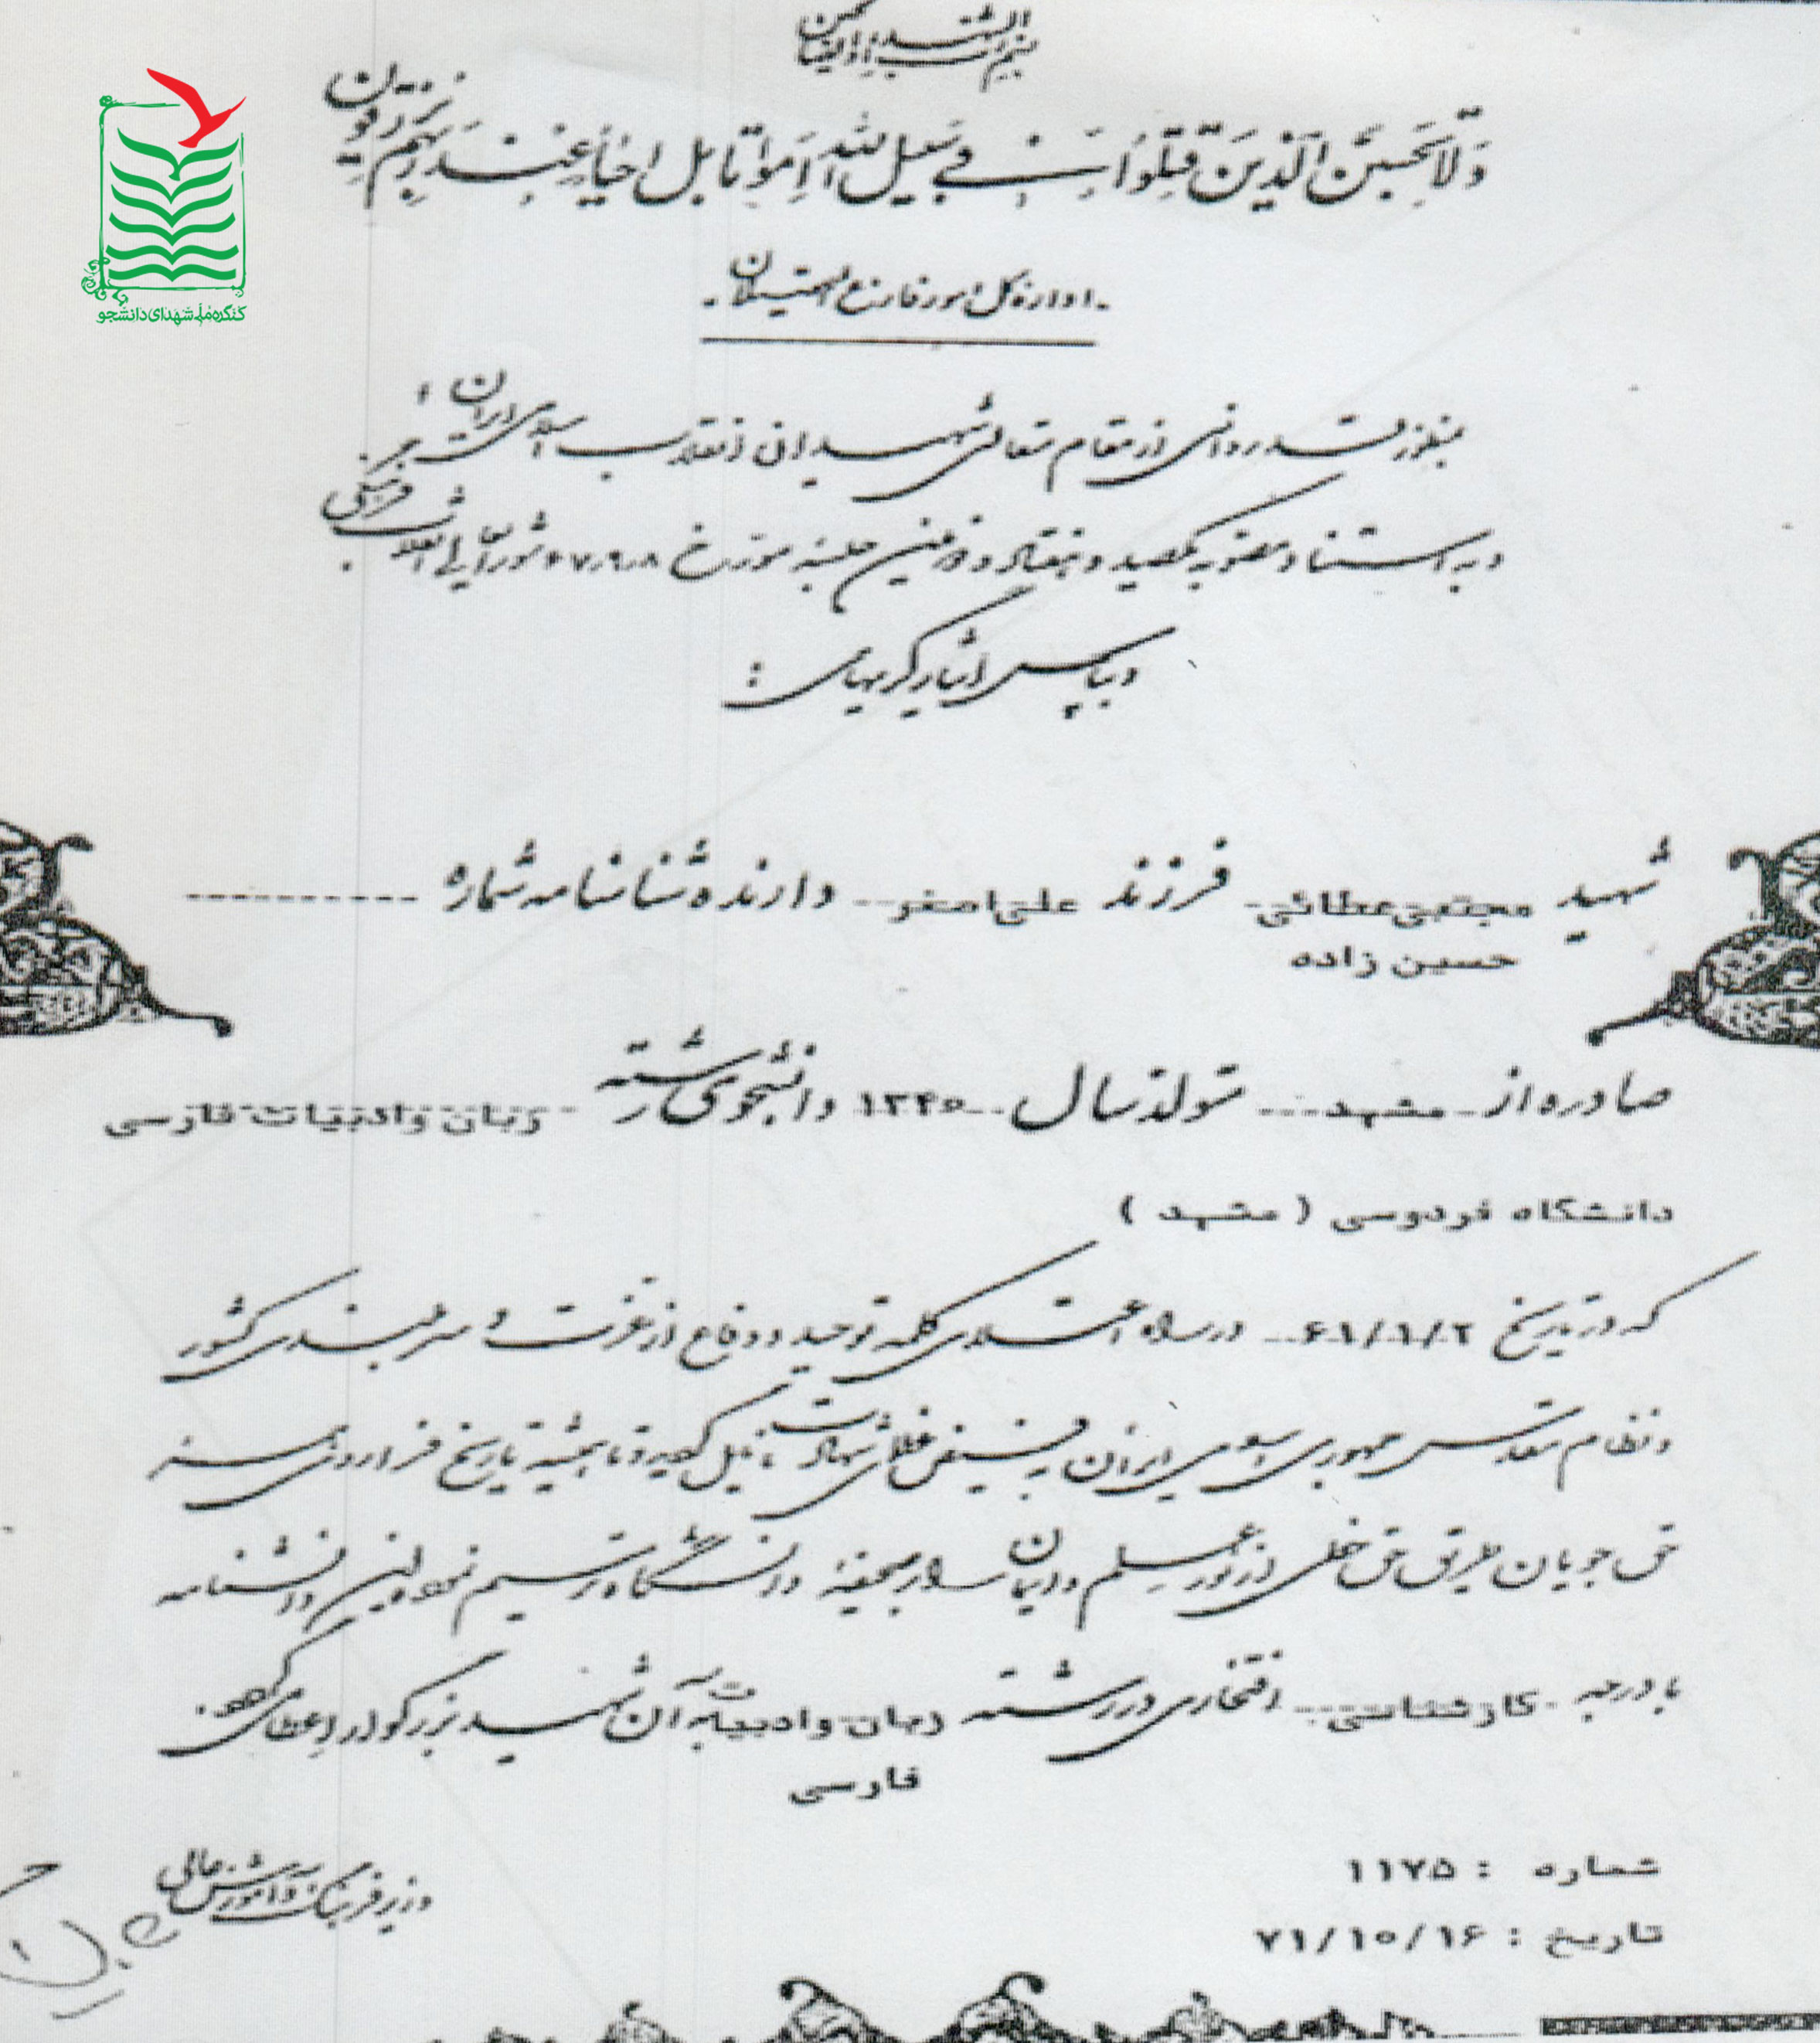 بسم الله الرحمن الرحیم
وَلا تَحْسَبَنَّ الَّذینَ قُتِلُوا فی سَبیلِ اللهِ اَمْواتا بَل اَحْیاءٌ عِنْدَ رَبِّهِم یُرْزَقُونَ
کنگره ملی شهدای دانشجو
اداره کل امور فارغ التحصیلان
بمنظور قدردانی از مقام متعالی شهیدان انقلاب اسلامی ایران
و به استناد مصوبه یکصد و هفتاد و دومین جلسه مورخ ۶۷٫۹٫۸ شورایعالی انقلاب فرهنگی
و بپاس ایثارگریهای :
شهید مجتبی عطائی فرزند علی اصغر دارنده شناسنامه شماره
حسین زاده
صادره از مشهد تولد سال ۱۳۴۰ دانشجوی رشته زبان و ادبیات فارسی
دانشگاه فردوسی ( مشهد )
که در تاریخ ۶۱/۱/۲ در راه اعتلای کلمه توحید و دفاع از عزت و سربلندی کشور
و نظام مقدس جمهوری اسلامی ایران به فیض عظمای شهادت نایل گردیده و تا همیشه تاریخ فرا روی همه
حق جویان طریق حق خطی از نور علم و ایمان را بر صحیفه دانشگاه ترسیم نموده این دانشنامه
با درجه کارشناسی افتخاری در رشته زبان و ادبیات به آن شهید بزرگوار اعطا می گردد.
فارسی
شماره : ۱۱۷۵
تاریخ : ۷۱/۱۰/۱۶
وزیر فرهنگ و آموزش عالی